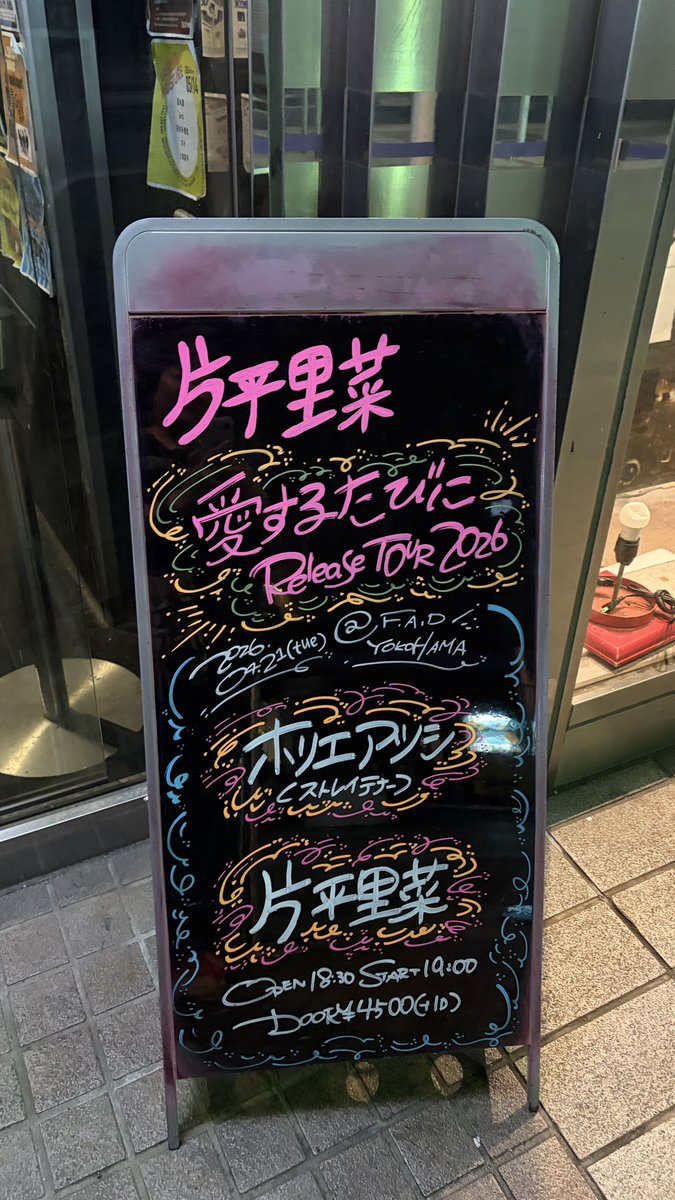 片平里菜
愛するたびに
Release TOUR 2026
2026
04.21(tue)
@ F.A.D
YOKOHAMA
ホリエアツシ
(ストレイテナー)
片平里菜
OPEN 18:30 START 19:00
DOOR ¥4500(+1D)
05/14